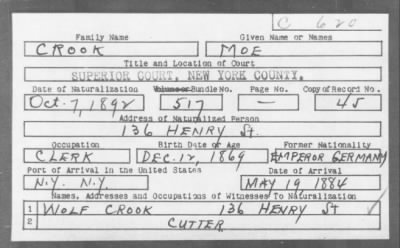 C 620
Family Name Given Name or Names
CROOK MOE
Title and Location of Court
SUPERIOR COURT, NEW YORK COUNTY.
Date of Naturalization Volume or Bundle No. Page No. Copy of Record No.
Oct. 7, 1892 517 — 45
Address of Naturalized Person
136 HENRY St.
Occupation Birth Date or Age Former Nationality
CLERK DEC. 12, 1869 EMPEROR GERMANY
Port of Arrival in the United States Date of Arrival
N.Y. N.Y. MAY 19 1884
Names, Addresses and Occupations of Witnesses To Naturalization
1 WOLF CROOK 136 HENRY St
2 CUTTER